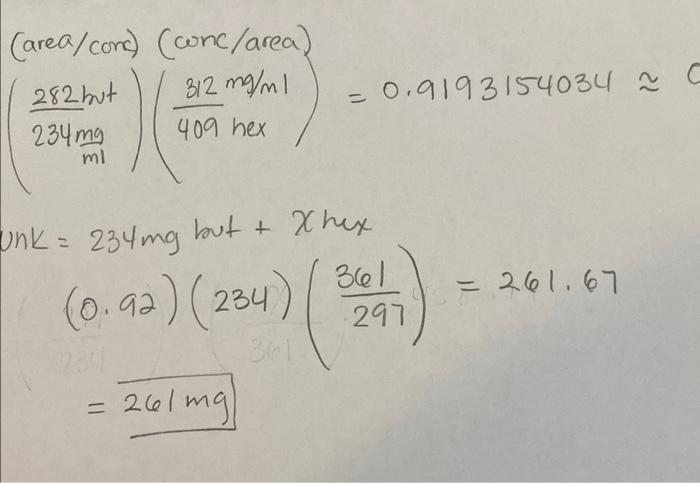 (area/conc) (conc/area)
(282 but / 234 mg/ml) (312 mg/ml / 409 hex) = 0.9193154034 ≈ 0
unk = 234mg but + x hex
(0.92)(234)(361/297) = 261.67
= 261 mg